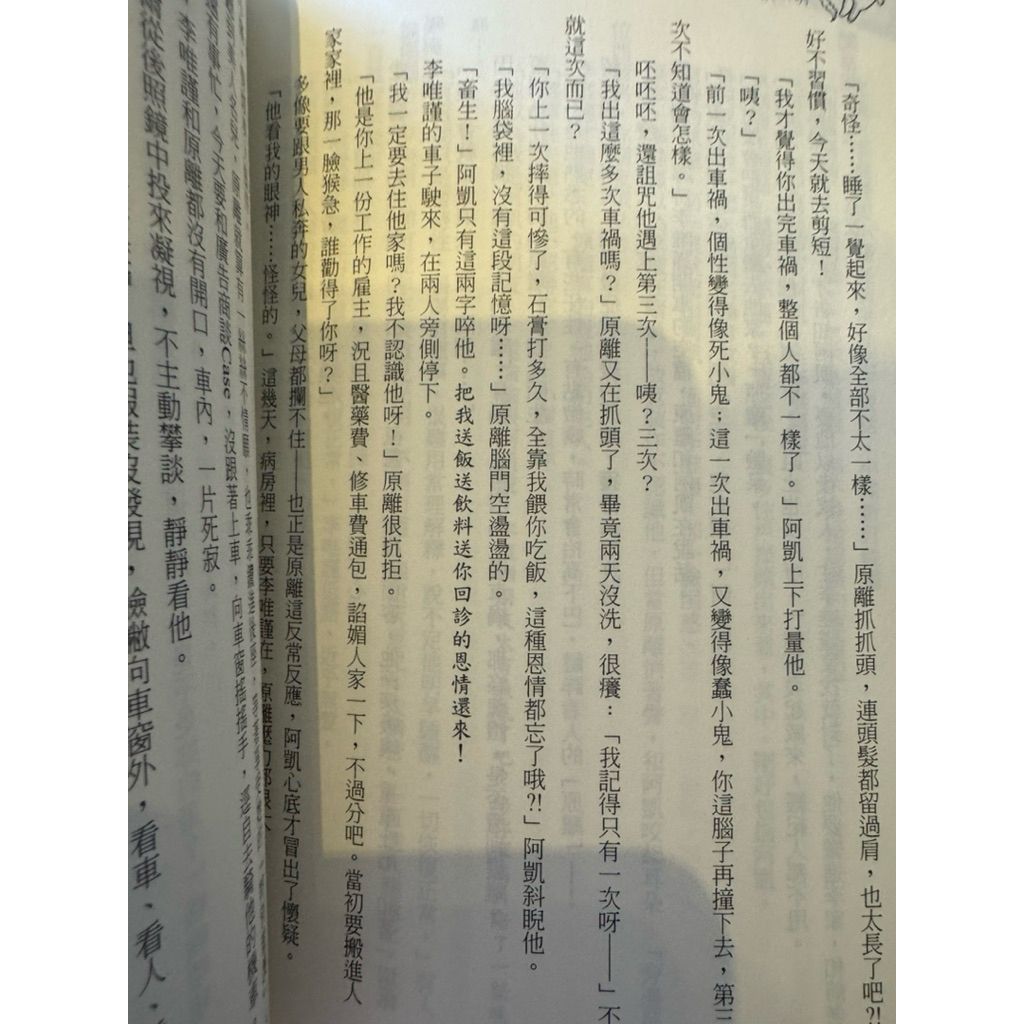 「奇怪……睡了一覺起來，好像全部不太一樣……」原離抓抓頭，連頭髮都留過肩，也太長了吧?!
好不習慣，今天就去剪短！
「我才覺得你出完車禍，整個人都不一樣了。」阿凱上下打量他。
「咦？」
「前一次出車禍，個性變得像死小鬼；這一次出車禍，又變得像蠢小鬼，你這腦子再撞下去，第三
次不知道會怎樣。」
呸呸呸，還詛咒他遇上第三次——咦？三次？
「我出這麼多次車禍嗎？」原離又在抓頭了，畢竟兩天沒洗，很癢：「我記得只有一次呀——」不
就這次而已？
「你上一次摔得可慘了，石膏打多久，全靠我餵你吃飯，這種恩情都忘了哦?!」阿凱斜睨他。
「我腦袋裡，沒有這段記憶呀……」原離腦門空盪盪的。
「畜生！」阿凱只有這兩字啐他。把我送飯送飲料送你回診的恩情還來！
李唯謹的車子駛來，在兩人旁側停下。
「我一定要去住他家嗎？我不認識他呀！」原離很抗拒。
「他是你上一份工作的雇主，況且醫藥費、修車費通包，諂媚人家一下，不過分吧。當初要搬進人
家家裡，那一臉猴急，誰勸得了你呀？」
多像要跟男人私奔的女兒，父母都攔不住——也正是原離這反常反應，阿凱心底才冒出了懷疑。
「他看我的眼神……怪怪的。」這幾天，病房裡，只要李唯謹在，原離壓力都很大
還有事忙，今天要和廣告商談Case，沒跟著上車，向車窗搖搖手，逕自去
李唯謹和原離都沒有開口，車內，一片死寂。
從後照鏡中投來凝視，不主動攀談，靜靜看他。
假裝沒發現，臉撇向車窗外，看車、看人、